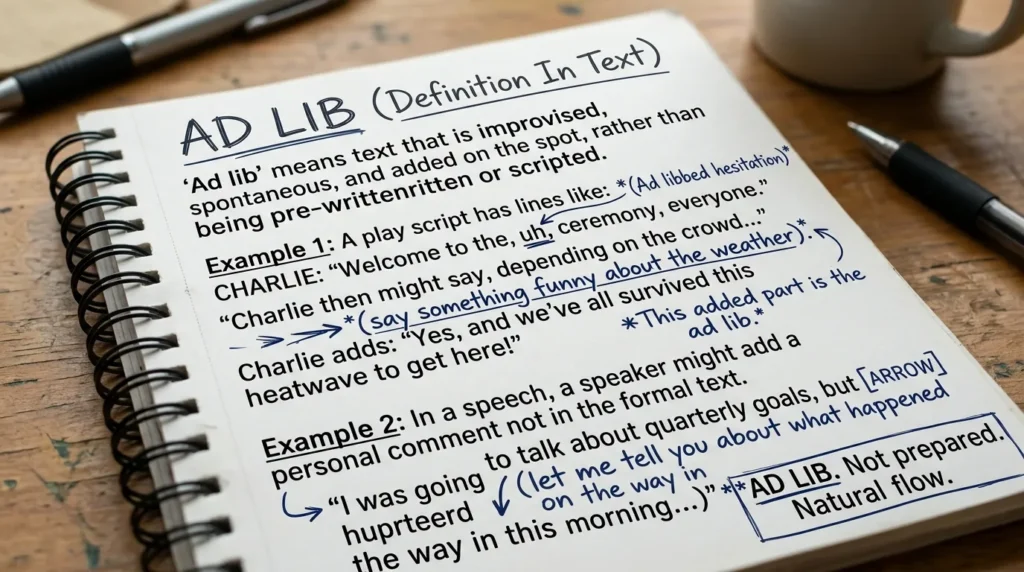 AD LIB (Definition In Text)
‘Ad lib’ means text that is improvised,
spontaneous, and added on the spot, rather than
being pre-writtenritten or scripted.
*(Ad libbed hesitation)*
Example 1: A play script has lines like:
CHARLIE: “Welcome to the, uh, ceremony, everyone.”
“Charlie then might say, depending on the crowd...”
*(say something funny about the weather).*
Charlie adds: “Yes, and we’ve all survived this
heatwave to get here!”
*This added part is the
ad lib.*
Example 2: In a speech, a speaker might add a
personal comment not in the formal text.
“I was going to talk about quarterly goals, but [ARROW]
huprteerd (let me tell you about what happened
on the way in
the way in this morning...)” **
AD LIB. Not prepared.
Natural flow.